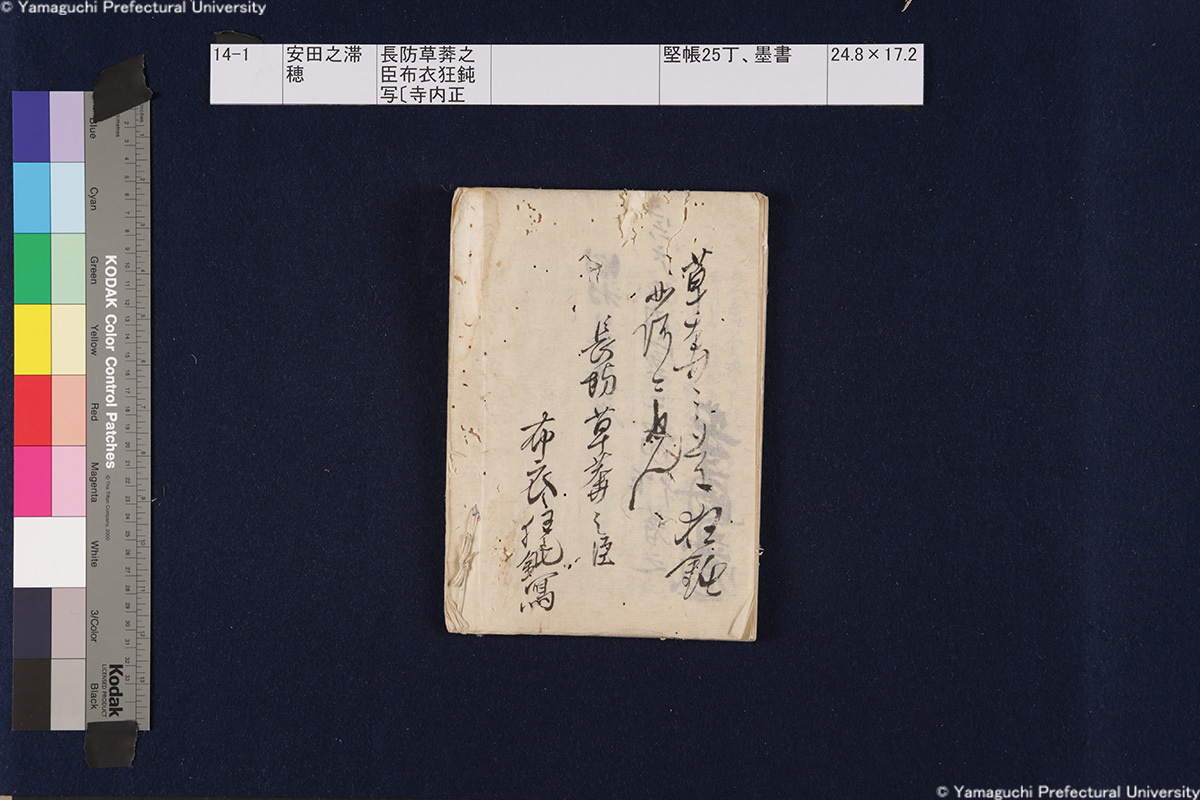 © Yamaguchi Prefectural University
14-1
安田之滞
穂
長防草莽之
臣布衣狂鈍
写〔寺内正
竪帳25丁、墨書
24.8×17.2
Blue
Cyan
Green
Yellow
Red
Magenta
White
3/Color
Black
KODAK Color Control Patches
© The Tiffen Company, 2000
Kodak
LICENSED PRODUCT
草莽之
狂鈍
長防草莽之臣
布衣狂鈍写
© Yamaguchi Prefectural University